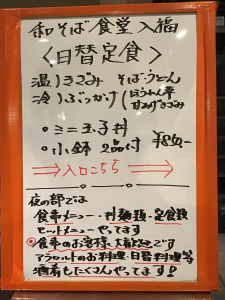 和そば食堂入福
〈日替定食〉
温)きざみ そば・うどん
冷)ぶっかけ(ほうれん草 甘あげきざみ
・ミニ玉子丼
・小鉢 2品付 ¥850-
→入口こちら→
夜の部では
食事メニュー・丼麺類・定食類
セットメニューやってます
◎食事のお客様、大歓迎です
アラカルトのお料理・日替料理等
酒肴もたくさんやってます!